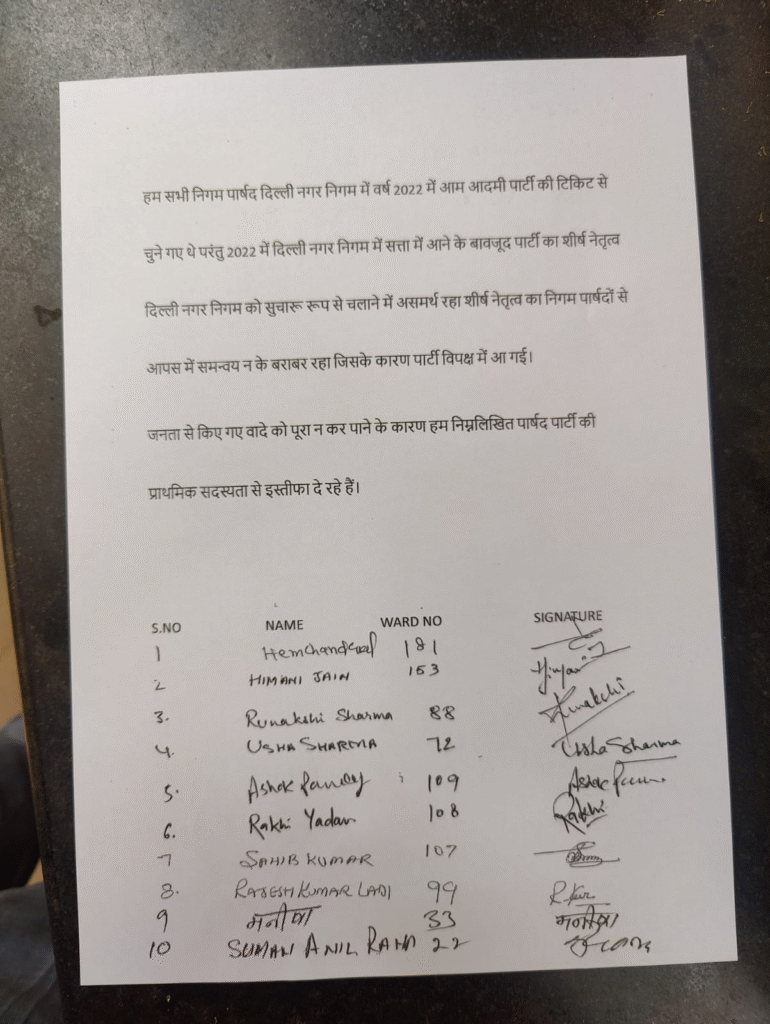 हम सभी निगम पार्षद दिल्ली नगर निगम में वर्ष 2022 में आम आदमी पार्टी की टिकिट से
चुने गए थे परंतु 2022 में दिल्ली नगर निगम में सत्ता में आने के बावजूद पार्टी का शीर्ष नेतृत्व
दिल्ली नगर निगम को सुचारू रूप से चलाने में असमर्थ रहा शीर्ष नेतृत्व का निगम पार्षदों से
आपस में समन्वय न के बराबर रहा जिसके कारण पार्टी विपक्ष में आ गई।
जनता से किए गए वादे को पूरा न कर पाने के कारण हम निम्नलिखित पार्षद पार्टी की
प्राथमिक सदस्यता से इस्तीफा दे रहे हैं।
S.NO NAME WARD NO SIGNATURE
1 Hemchand Goel 181
2 HIMANI JAIN 153
3. Runakshi Sharma 88 Runakshi
4. USHA SHARMA 72 Usha Sharma
5. Ashok Pandey 109 Ashok
6. Rakhi Yadav 108 Rakhi
7 SAHIB KUMAR 107
8. RAJESH KUMAR LADI 99
9 मनीषा 33 मनीषा
10 SUMAN ANIL RANA 22